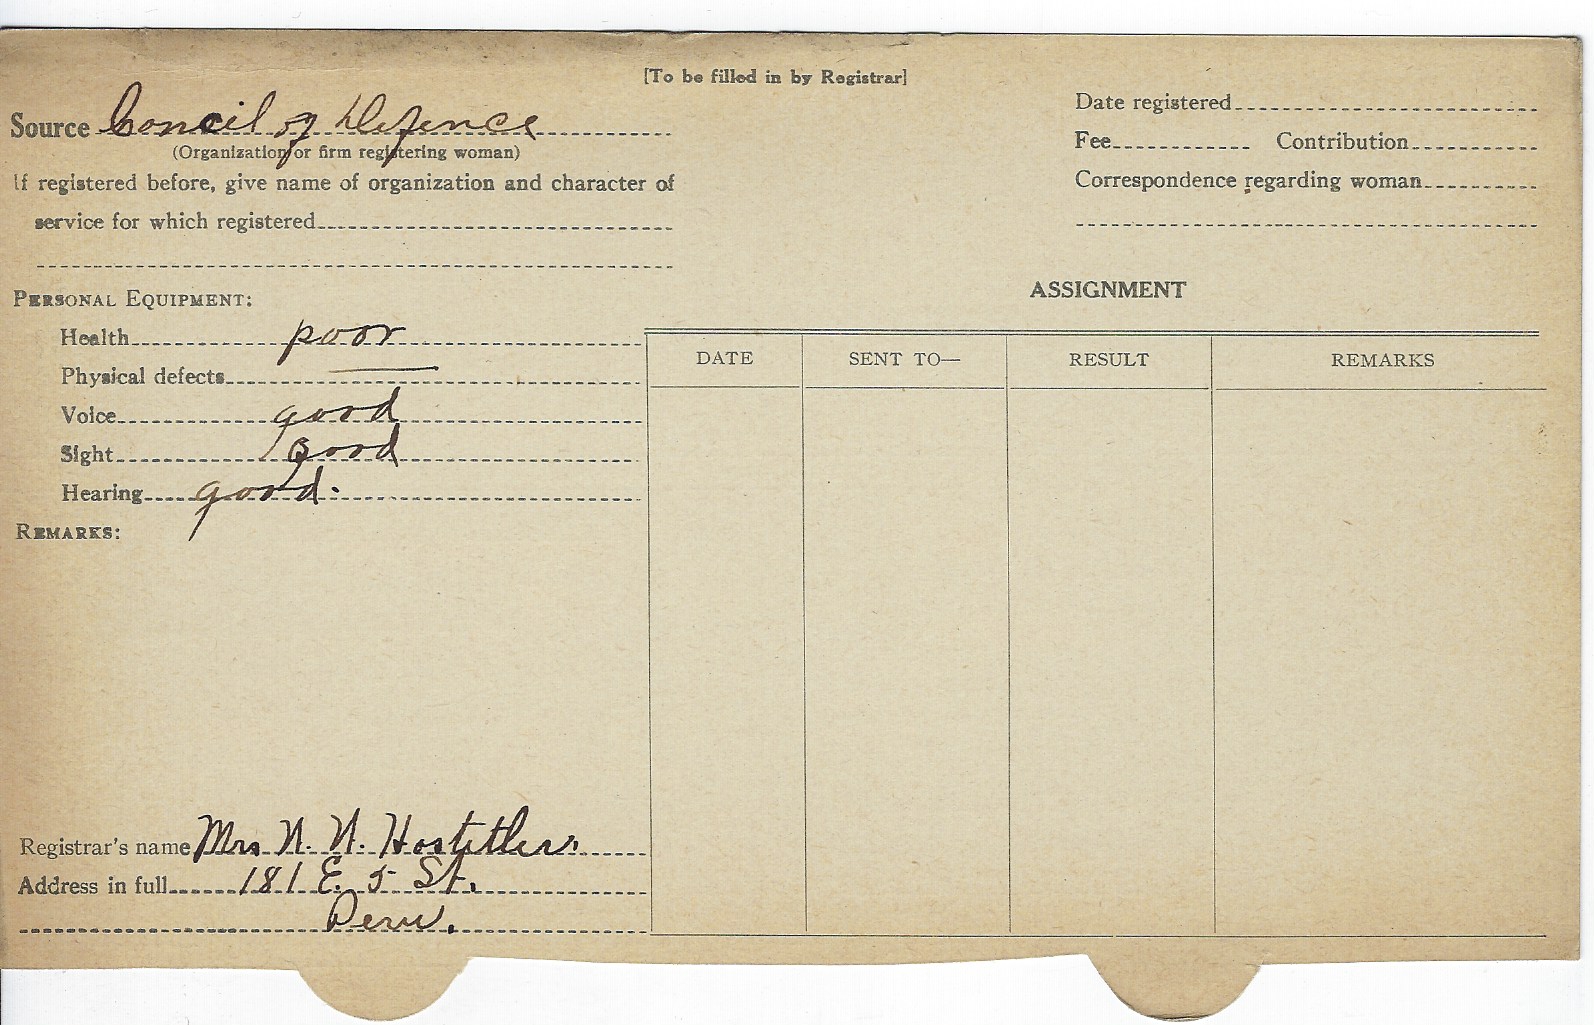 [To be filled in by Registrar]
Source Concil of Defence
(Organization or firm registering woman)
If registered before, give name of organization and character of
service for which registered
Date registered
Fee Contribution
Correspondence regarding woman
PERSONAL EQUIPMENT:
Health poor
Physical defects —
Voice good
Sight good
Hearing good.
REMARKS:
ASSIGNMENT
DATE SENT TO— RESULT REMARKS
Registrar's name Mrs N. N. Hostetler.
Address in full 181 E. 5 St.
Peru.